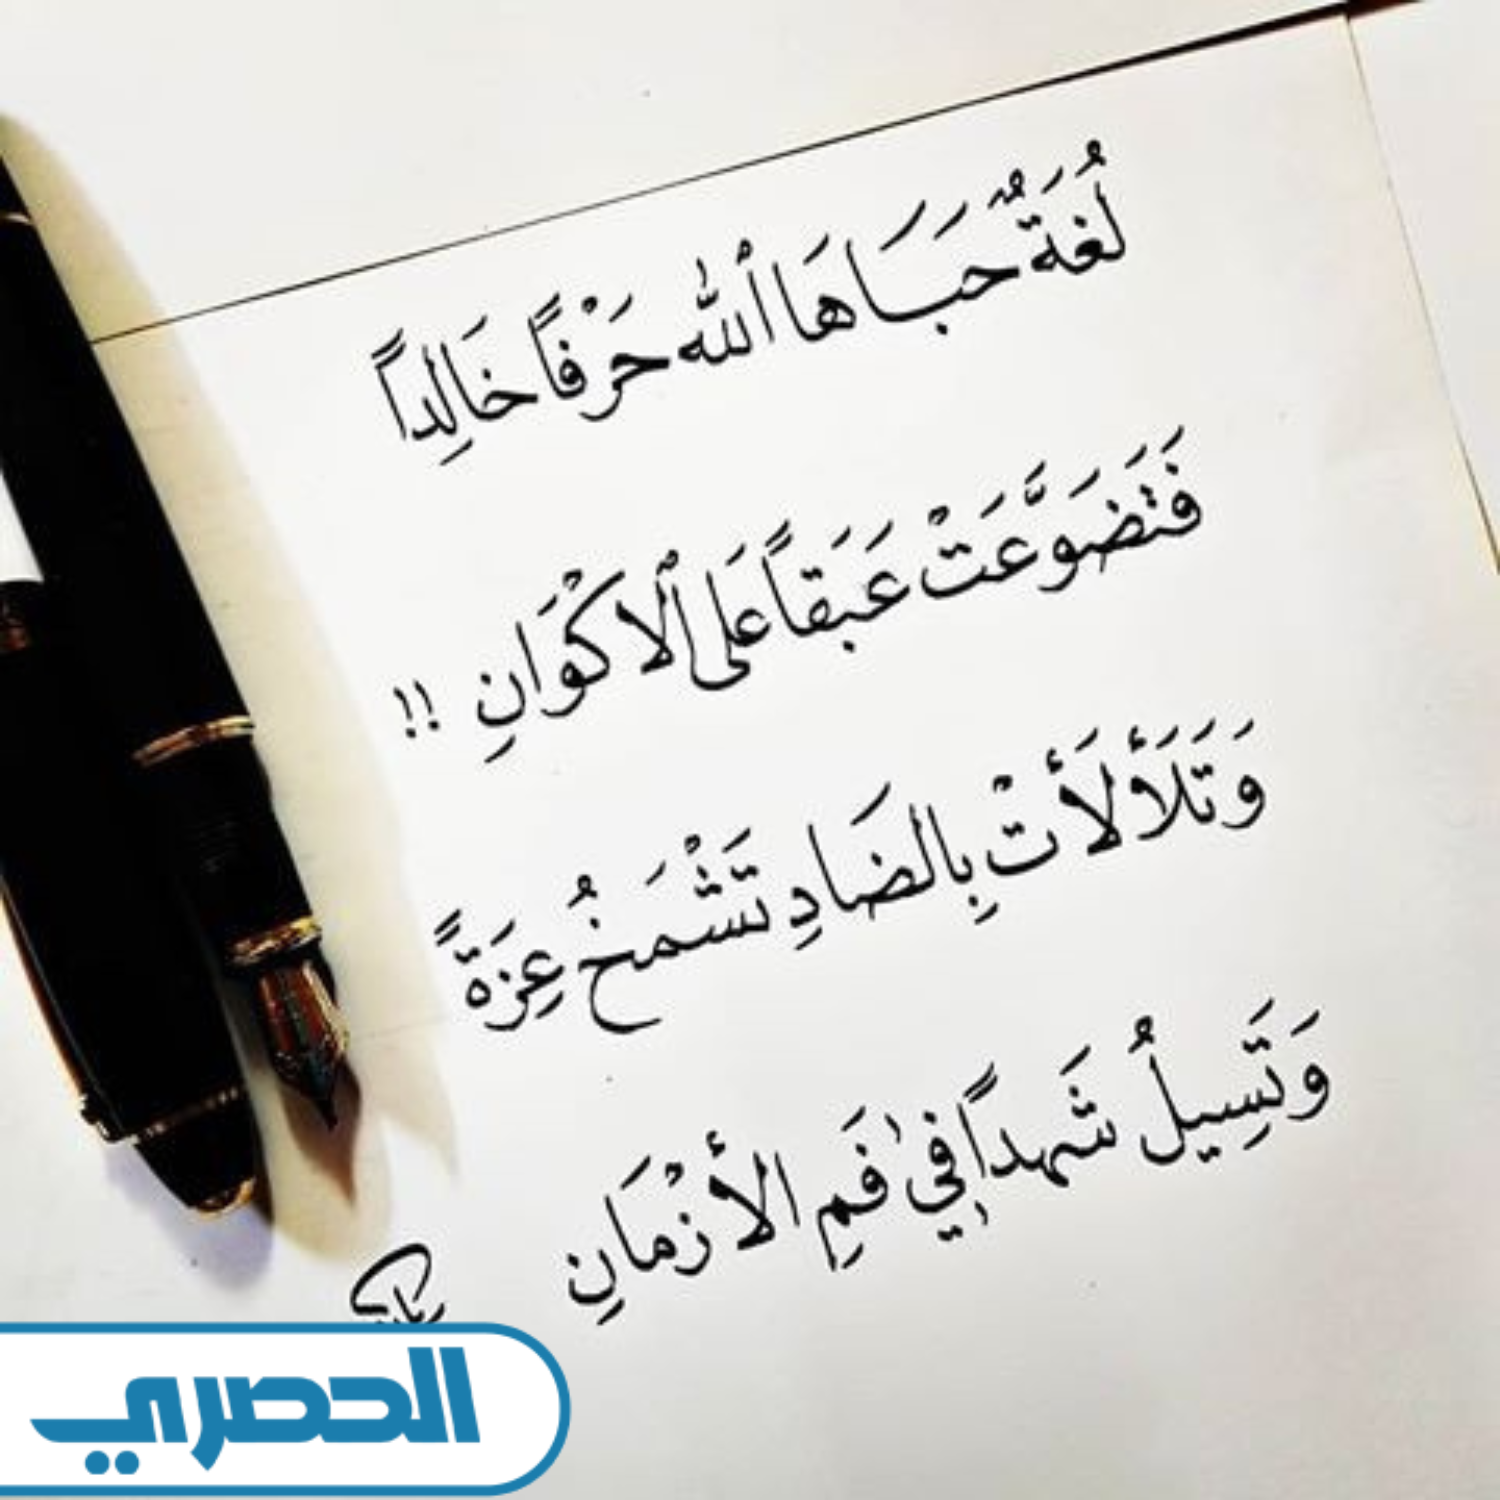 لُغَةٌ حَبَاهَا ٱللهُ حَرْفاً خَالِداً
فَتَضَوَّعَتْ عَبَقاً عَلَى ٱلْاَكْوَانِ !!
وَتَلَأْلَأَتْ بِالضَادِ تَشْمَخُ عِزَةً
وَتَسِيلُ شَهداً فِي فَمِ الأَزْمَانِ
الحصري